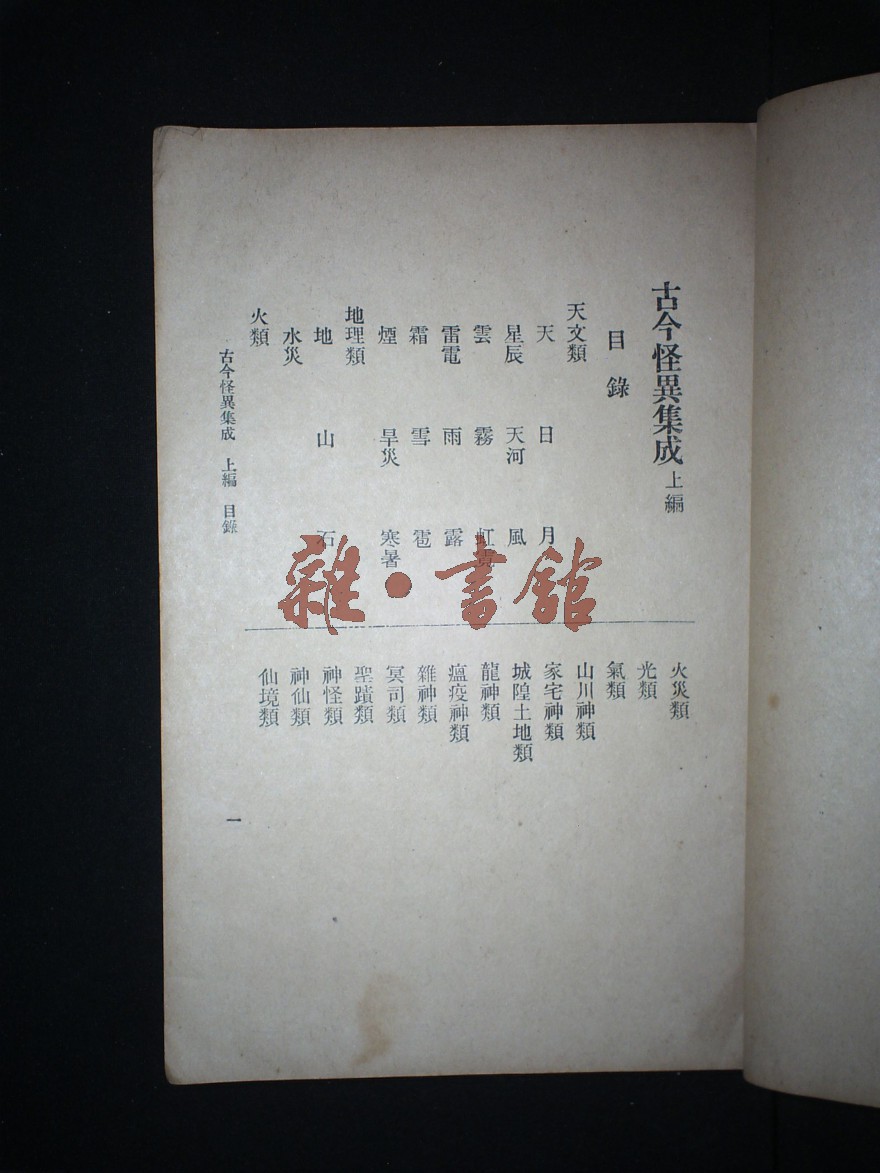 古今怪異集成 上編
目錄
天文類
天 日 月
星辰 天河 風
雲 霧 虹霓
雷電 雨 露
霜 雪 雹
煙 旱災 寒暑
地理類
地 山 石
水災
火類
火災類
光類
氣類
山川神類
家宅神類
城隍土地類
龍神類
瘟疫神類
雜神類
冥司類
聖蹟類
神怪類
神仙類
仙境類
古今怪異集成 上編 目錄
一
雜·書館